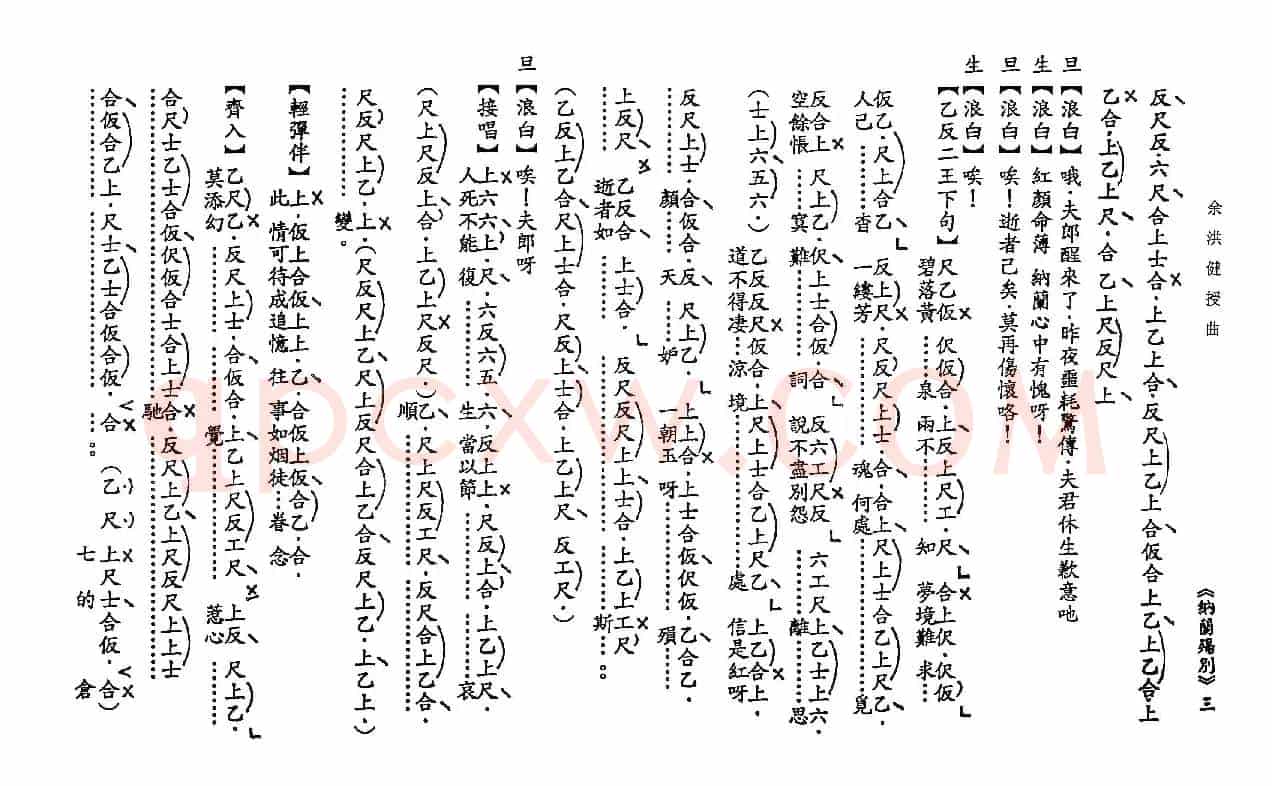 余洪健授曲
《納蘭殤別》三
反尺反·六尺合上士合·上乙上合·反尺上乙上合仮合上乙上乙合·上
乙合·上乙上尺·合乙上尺反尺上
旦【浪白】哦·夫郎醒來了·昨夜噩耗驚傳·夫君休生歉意吔
生【浪白】紅顏命薄 納蘭心中有愧呀！
旦【浪白】唉！逝者已矣·莫再傷懷咯！
生【浪白】唉！
【乙反二王下句】尺乙仮 伬仮合·上反上尺工·尺 合上伬·伬仮
碧落黃……泉 兩不……知 夢境難 求……
仮乙·尺上合乙 反上尺·尺反尺上士·合·合上尺上士合乙上尺乙·
人己……杳 一縷芳……魂 何處……覓
反合上 尺上乙·伬上士合仮·合 反六工尺反 六工尺上乙士上六·
空餘悵……寞 難……詞 說不盡別怨……離……思
（士上六五六）乙反反尺仮合·上尺上士合乙上尺乙 上乙合上·
道不得淒…涼 境……處 信是紅呀
反尺上士·合仮合·反 尺上乙·上上合·上士合仮伬仮·乙合乙·
……顏……天 妒……一朝玉呀……殞……
上反尺 乙反合 上士合· 反尺反尺上上士合·上乙上工尺
…… 逝者如……斯……。
（乙反上乙合尺上士合·尺反上士合·上乙上尺 反工尺·）
旦【浪白】唉！夫郎呀
【接唱】上六六上·尺·六反六五·六·反上上·尺反上合·上乙上尺·
人死不能 復……生 當以節……哀
（尺上尺反上合·上乙上尺反尺·）乙·尺上尺反工尺·反尺合上乙合·
順……
尺反尺上乙·上·（尺反尺上乙尺上反尺合上乙合反尺上乙·上乙上·）
……變。
【輕彈伴】上·仮上合仮上上·乙·合仮上仮合乙·合·
此 情可待成追憶 往 事如烟徒…眷 念
【齊入】乙尺乙·反尺上士·合仮合·上乙上尺反工尺 上反 尺上乙·
莫添幻……覺……惹心……
合尺士乙士合仮伬仮合士合上士合·反尺上乙上尺反尺上上士
……馳……
合仮合乙上·尺士乙士合仮合仮·合（乙·尺·上尺士合仮·合）
……。七的 倉